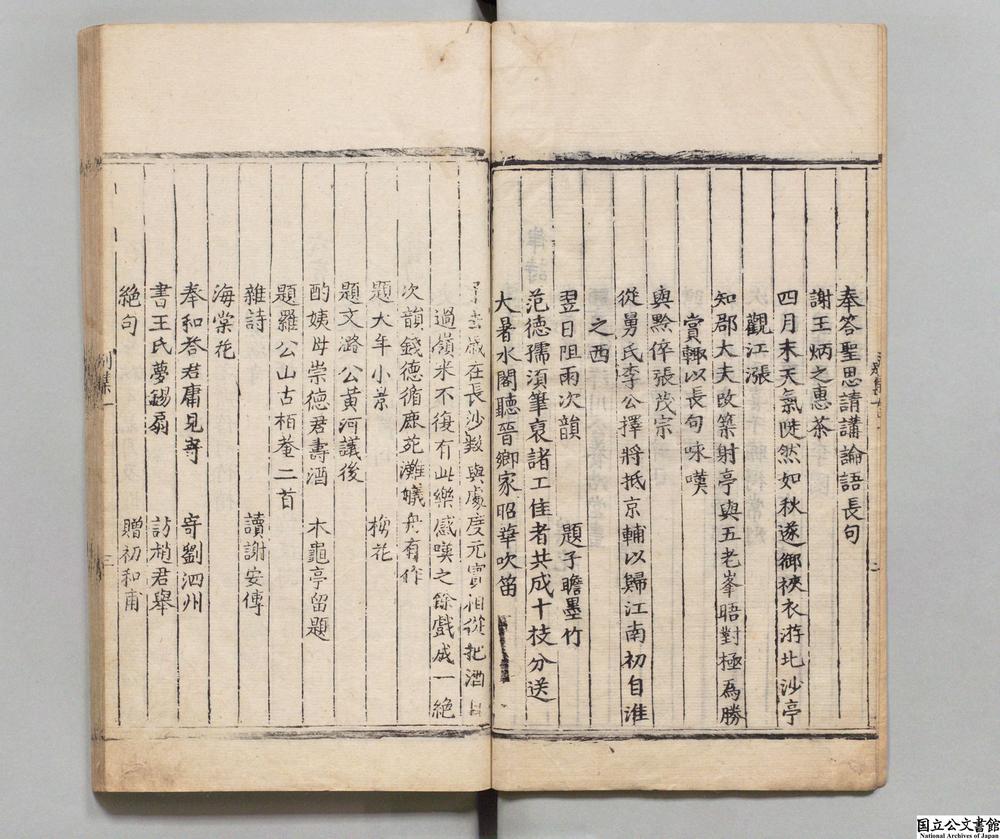 奉答聖思請講論語長句
謝王炳之惠茶
四月末天氣陡然如秋遂御裌衣游北沙亭
觀江漲
知郡大夫改築射亭與五老峯晤對極為勝
賞輙以長句咏嘆
與黔倅張茂宗
從舅氏李公擇將抵京輔以歸江南初自淮
之西
翌日阻雨次韻 題子瞻墨竹
范德孺須筆哀諸工佳者共成十枝分送
大暑水閣聽晉卿家昭華吹笛
去歲在長沙數與處度元實相從把酒自
過嶺來不復有此樂感嘆之餘戲成一絕
次韻錢德循鹿苑灘艤舟有作
題大年小景 梅花
題文潞公黃河議後
酌姨母崇德君壽酒 木龜亭留題
題羅公山古栢菴二首
雜詩 讀謝安傳
海棠花
奉和荅君庸見寄 寄劉泗州
書王氏夢錫扇 訪趙君舉
絕句 贈初和甫
別集一
三
国立公文書館
National Archives of Japan